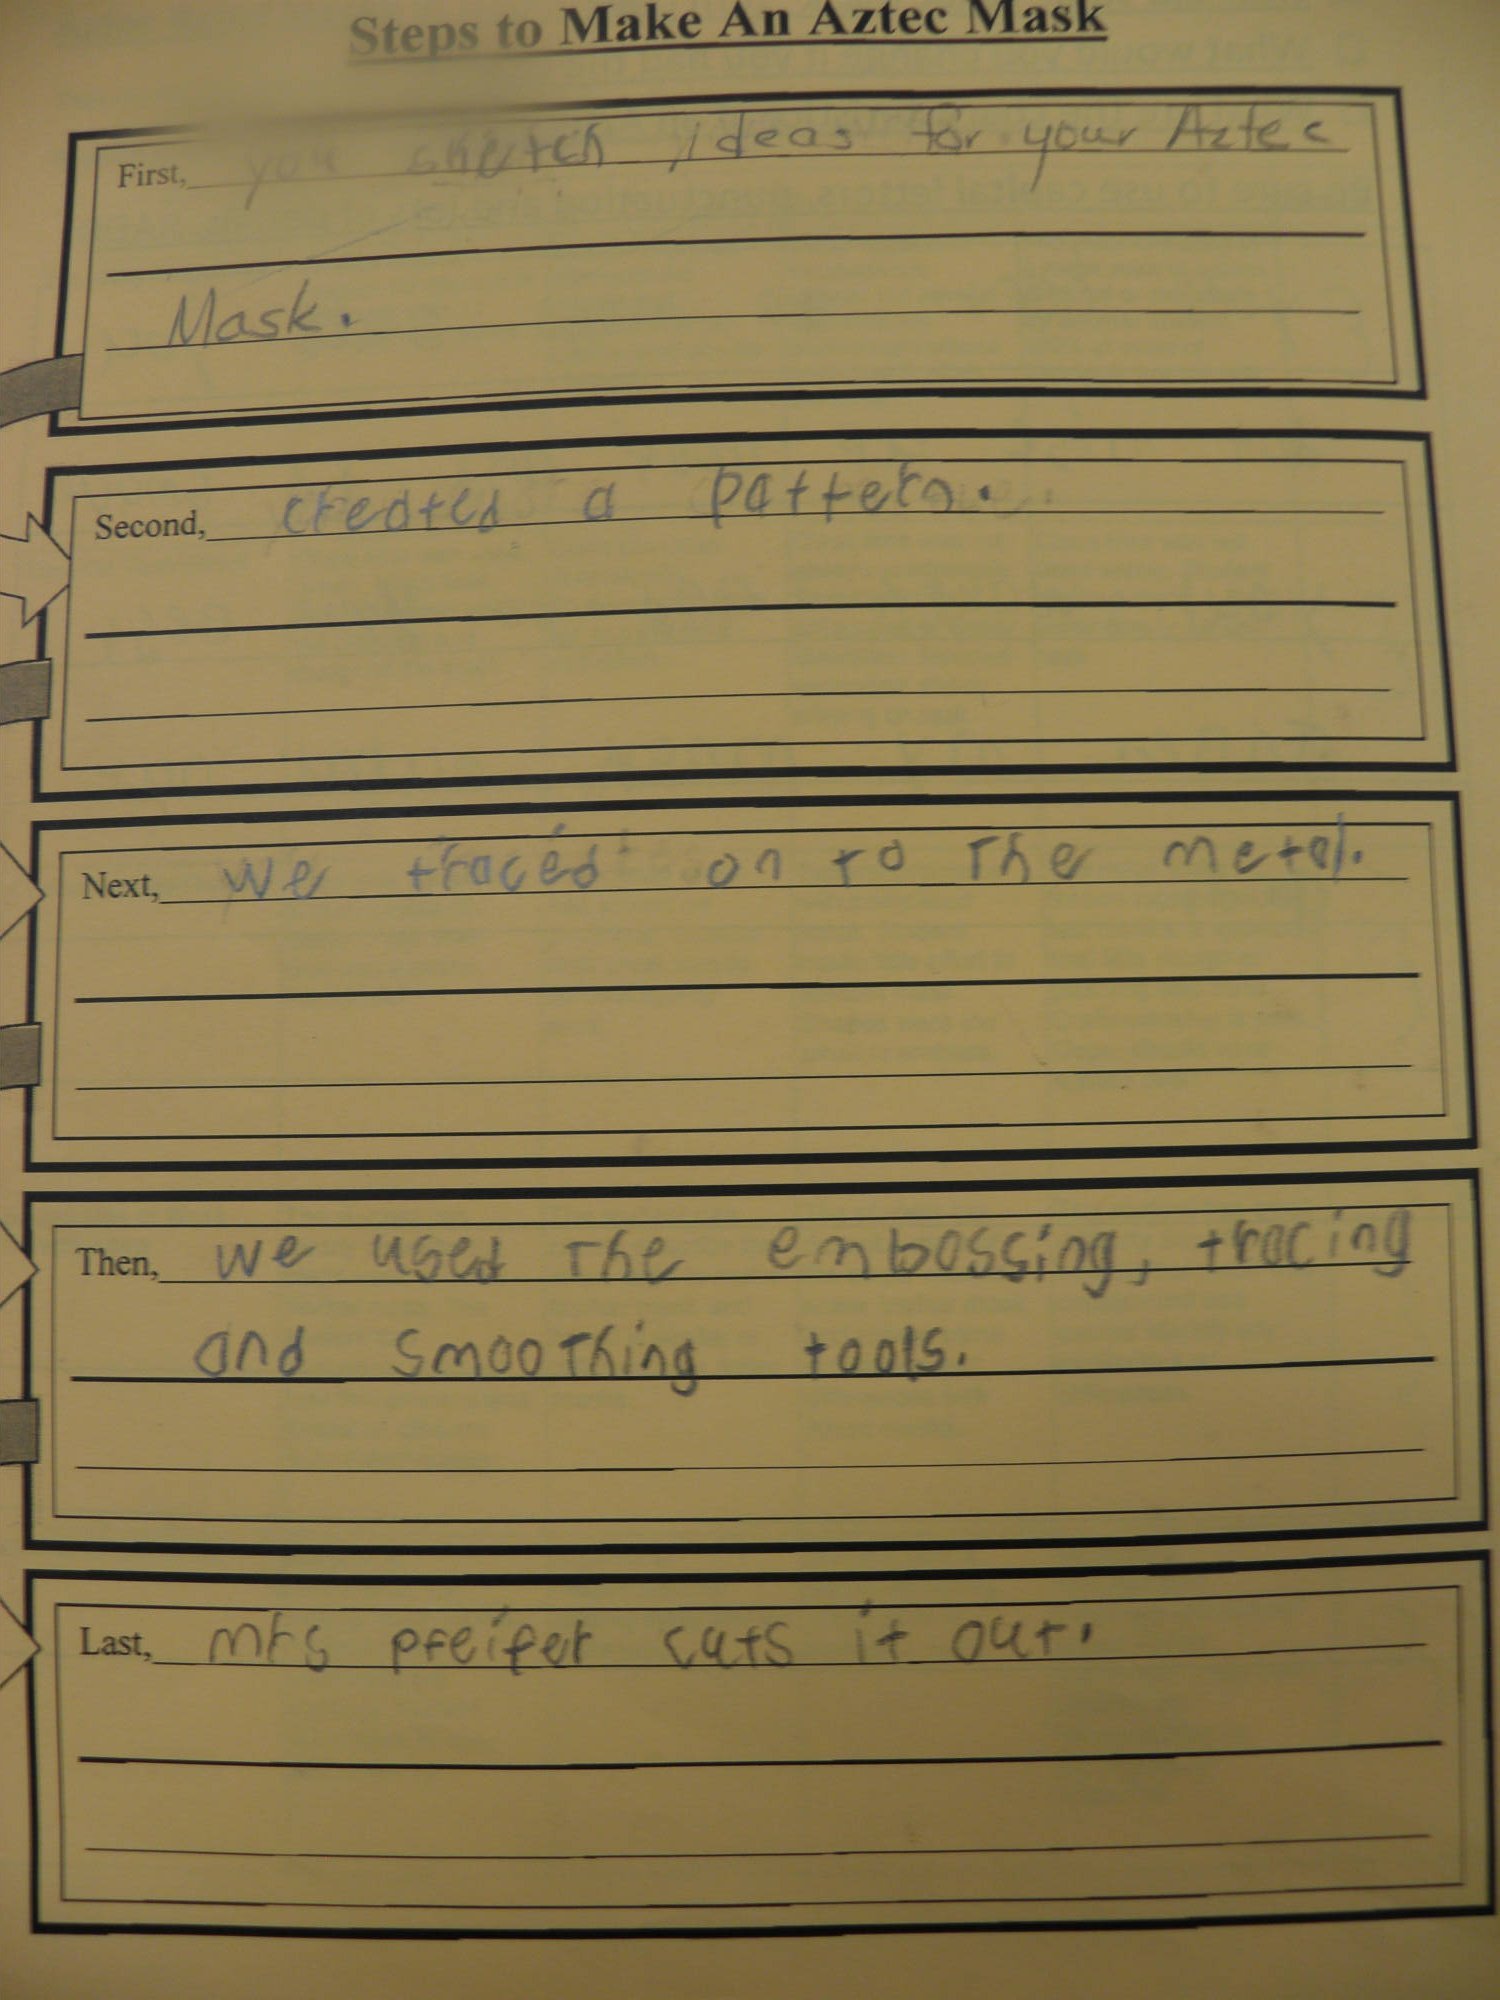 Steps to Make An Aztec Mask
First, you sketch Ideas for your Aztec
Mask.
Second, created a pattern.
Next, we traced on to the metal.
Then, we used the embossing, tracing
and smoothing tools.
Last, mrs pfeifer cuts it out.